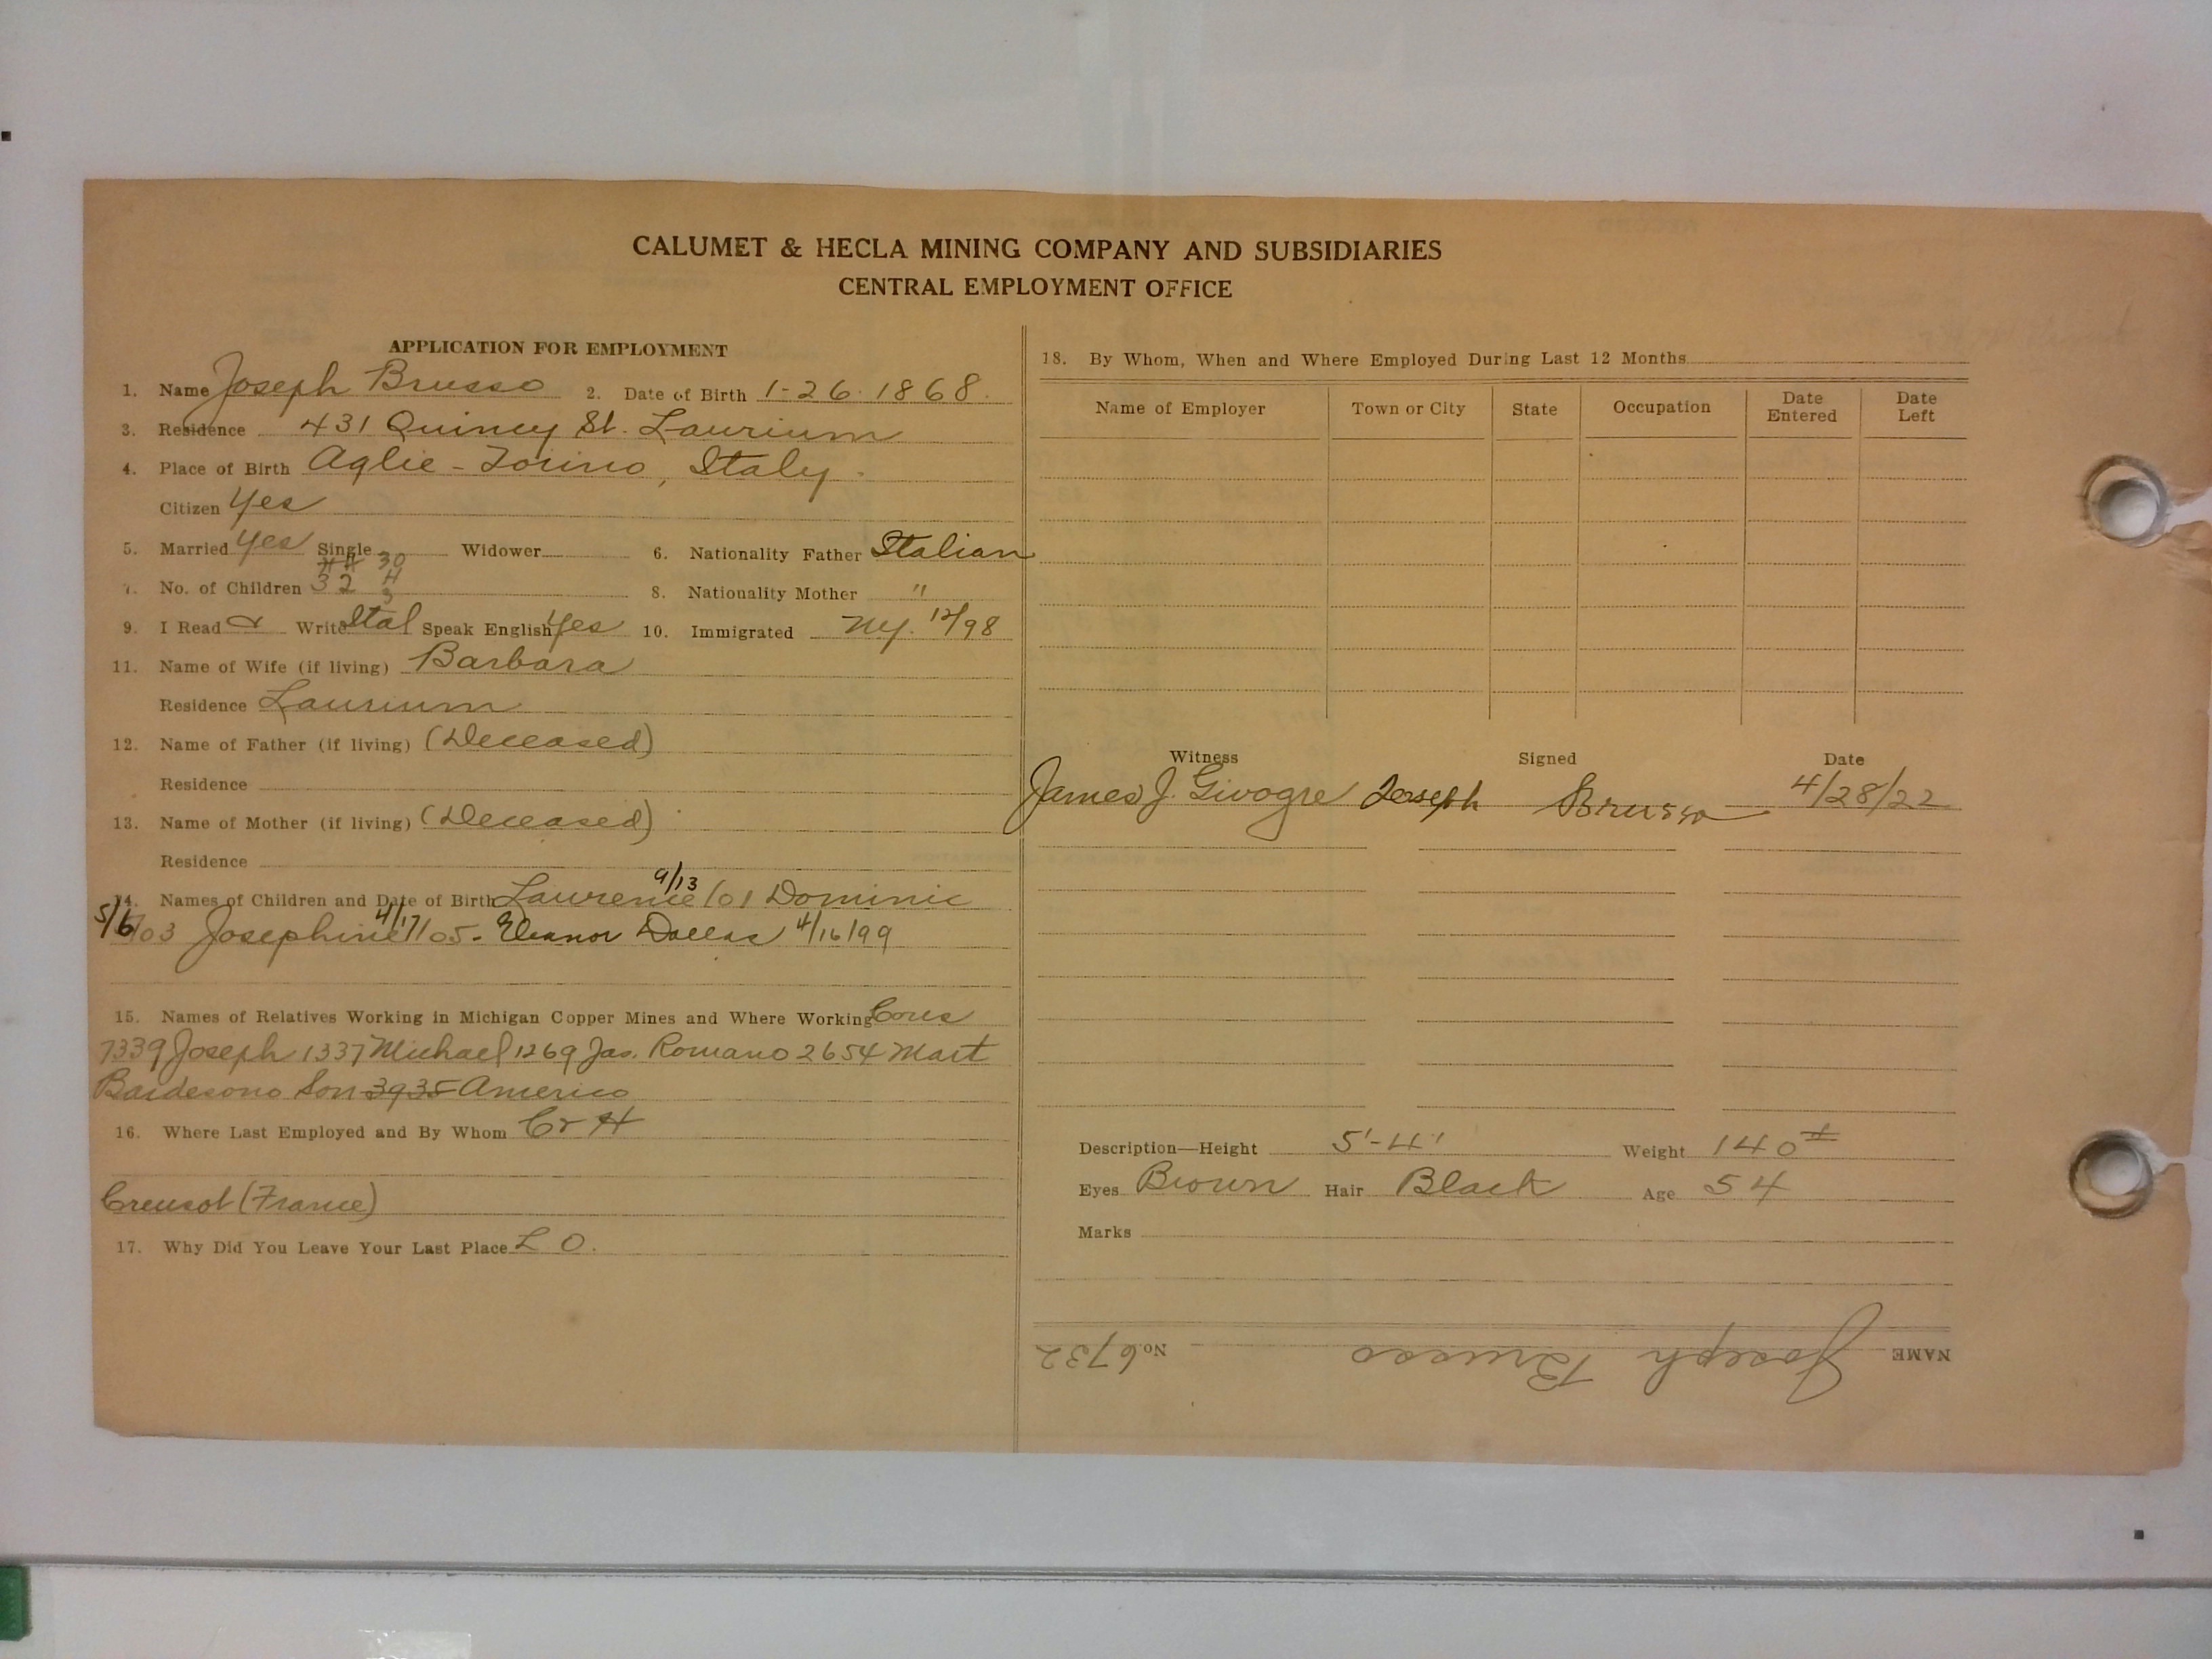 CALUMET & HECLA MINING COMPANY AND SUBSIDIARIES
CENTRAL EMPLOYMENT OFFICE
APPLICATION FOR EMPLOYMENT
1. Name Joseph Brusso 2. Date of Birth 1-26-1868.
3. Residence 431 Quincy St. Laurium
4. Place of Birth Aglie - Torino, Italy.
Citizen Yes
5. Married yes Single Widower 6. Nationality Father Italian
7. No. of Children 8. Nationality Mother "
9. I Read & Write Ital Speak English Yes 10. Immigrated NY. 12/98
11. Name of Wife (if living) Barbara
Residence Laurium
12. Name of Father (if living) (Deceased)
Residence
13. Name of Mother (if living) (Deceased)
Residence
14. Names of Children and Date of Birth Laurence 9/13/01 Dominic
5/6/03 Josephine 4/17/05- Eleanor Dallas 4/16/99
15. Names of Relatives Working in Michigan Copper Mines and Where Working Cous
7339 Joseph 1337 Michael 1269 Jas. Romano 2654 Mart
Bardesono Son 3935 Americo
16. Where Last Employed and By Whom C & H
Creusot (France)
17. Why Did You Leave Your Last Place L O.
18. By Whom, When and Where Employed During Last 12 Months
Name of Employer Town or City State Occupation Date Entered Date Left
Witness Signed Date
James J. Givogre Joseph Brusso 4/28/22
Description—Height 5'-4' Weight 140#
Eyes Brown Hair Black Age 54
Marks
NAME Joseph Brusso No. 6732